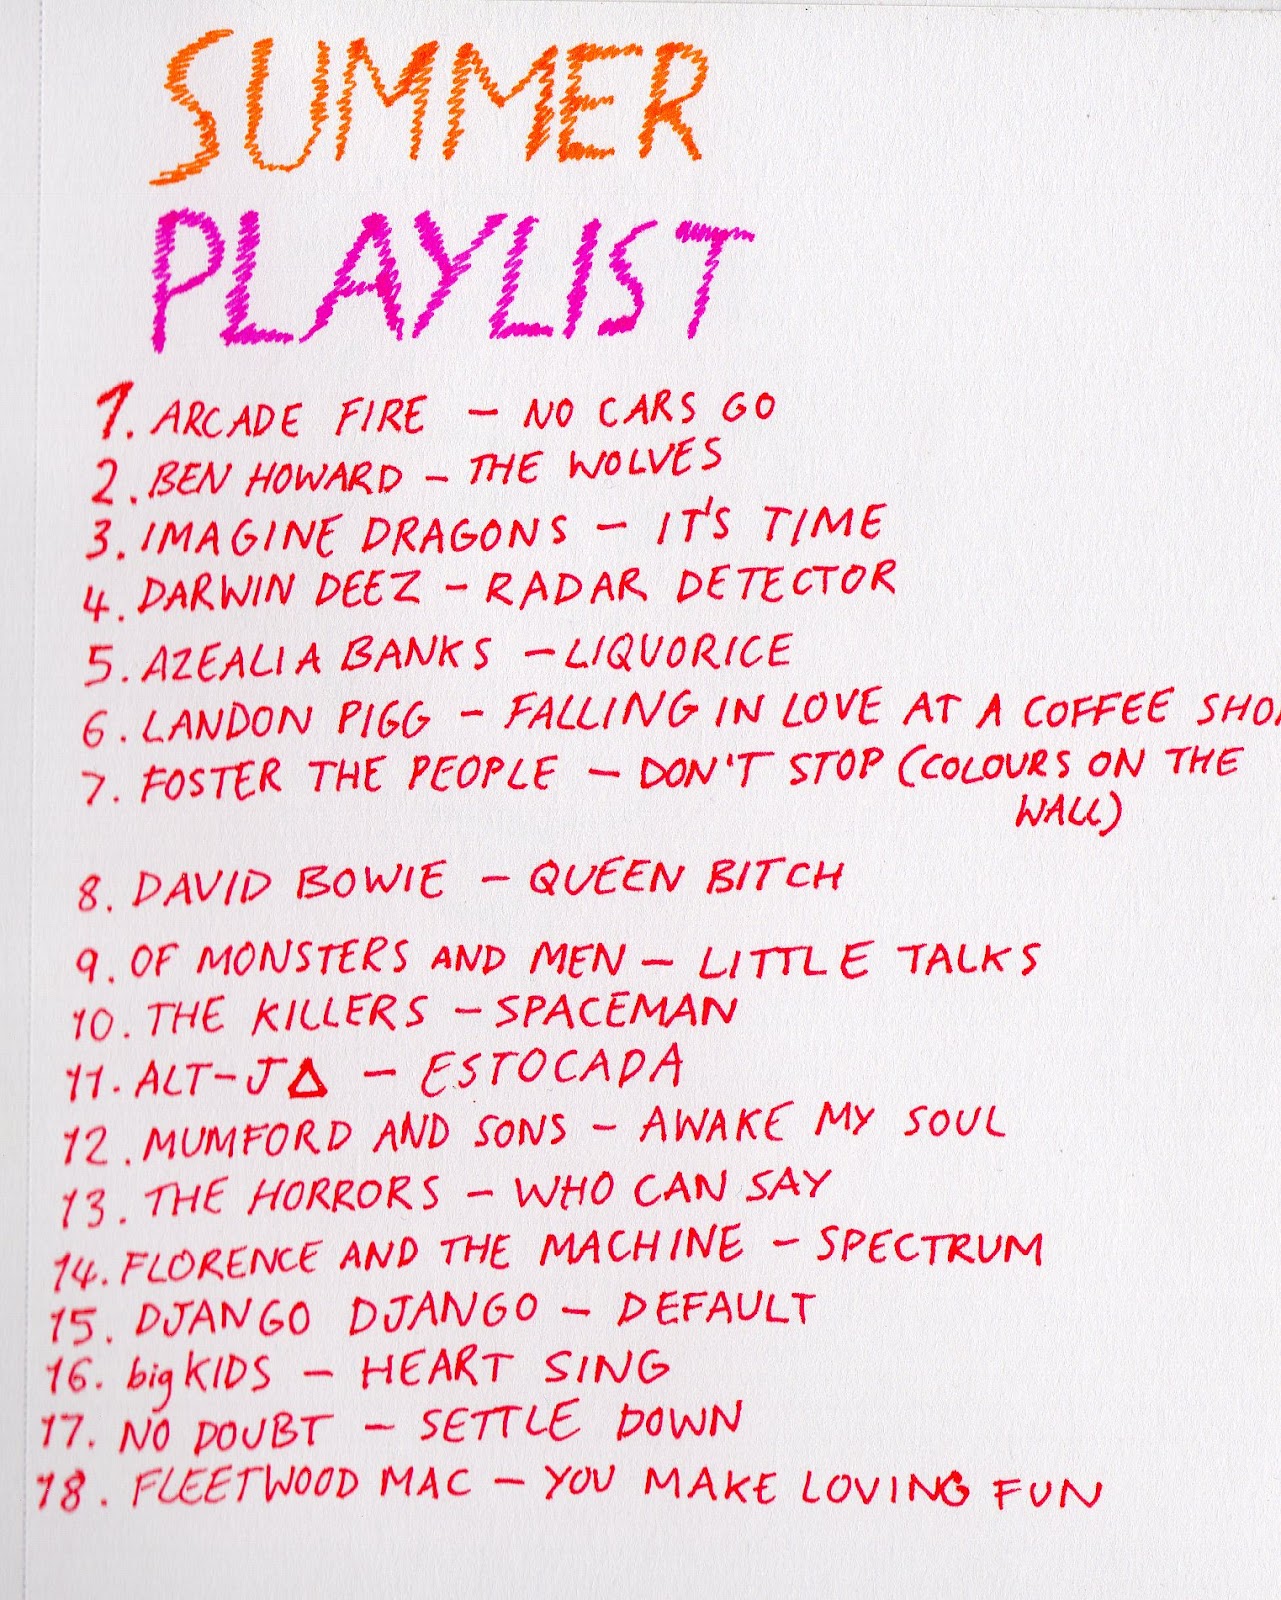 SUMMER
PLAYLIST
1. ARCADE FIRE - NO CARS GO
2. BEN HOWARD - THE WOLVES
3. IMAGINE DRAGONS - IT'S TIME
4. DARWIN DEEZ - RADAR DETECTOR
5. AZEALIA BANKS - LIQUORICE
6. LANDON PIGG - FALLING IN LOVE AT A COFFEE SHO
7. FOSTER THE PEOPLE - DON'T STOP (COLOURS ON THE
WALL)
8. DAVID BOWIE - QUEEN BITCH
9. OF MONSTERS AND MEN - LITTLE TALKS
10. THE KILLERS - SPACEMAN
11. ALT-J Δ - ESTOCADA
12. MUMFORD AND SONS - AWAKE MY SOUL
13. THE HORRORS - WHO CAN SAY
14. FLORENCE AND THE MACHINE - SPECTRUM
15. DJANGO DJANGO - DEFAULT
16. bigKIDS - HEART SING
17. NO DOUBT - SETTLE DOWN
18. FLEETWOOD MAC - YOU MAKE LOVING FUN